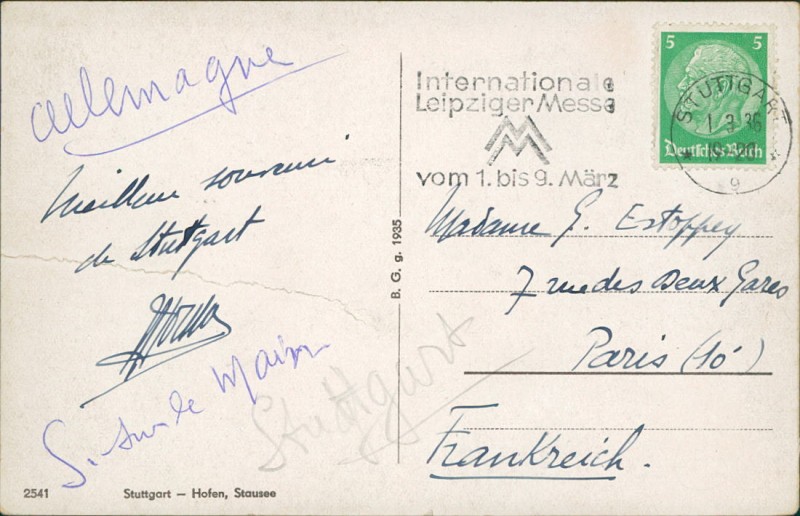 allemagne
Meilleur souvenir
de Stuttgart
S. sur le Main
Stuttgart
2541
Stuttgart – Hofen, Stausee
B. G. g. 1935
Internationale
Leipziger Messe
vom 1. bis 9. März
5 5
Deutsches Reich
STUTTGART
1.3.36
9
Madame G. Estoppey
7 rue des Deux Gares
Paris (10è)
Frankreich.